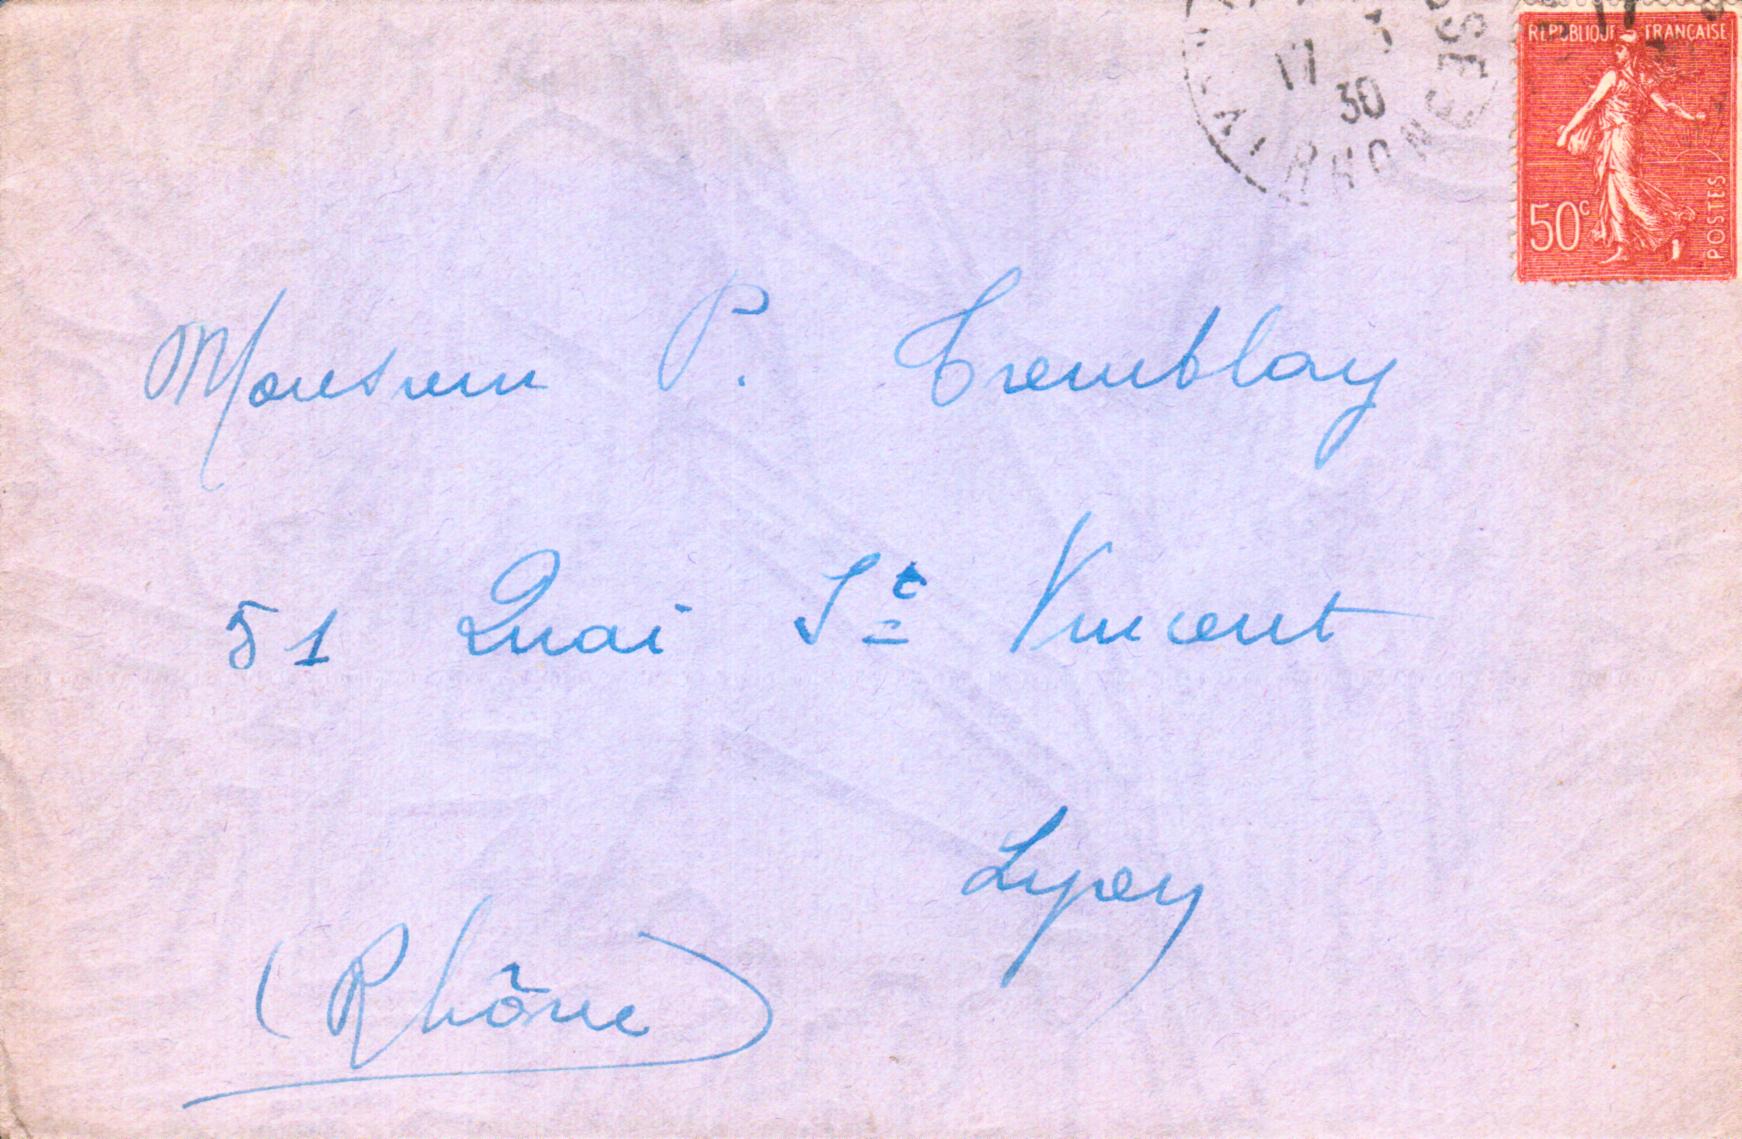 17 3
30
RHONE
RÉPUBLIQUE FRANÇAISE
50c
POSTES
Monsieur P. Tremblay
51 Quai St Vincent
Lyon
(Rhône)